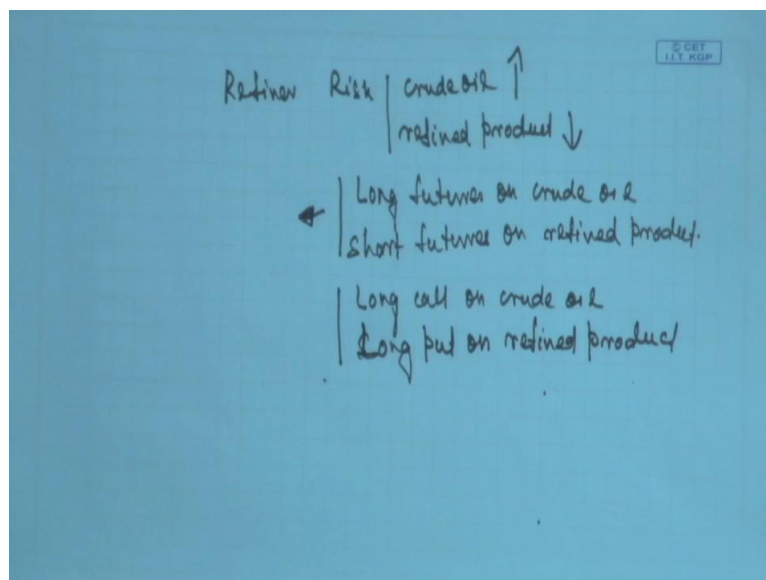 © CET
I.I.T. KGP
Refiner Risk | crude oil ↑
refined product ↓
Long futures on crude oil
Short futures on refined product.
Long call on crude oil
Long put on refined product